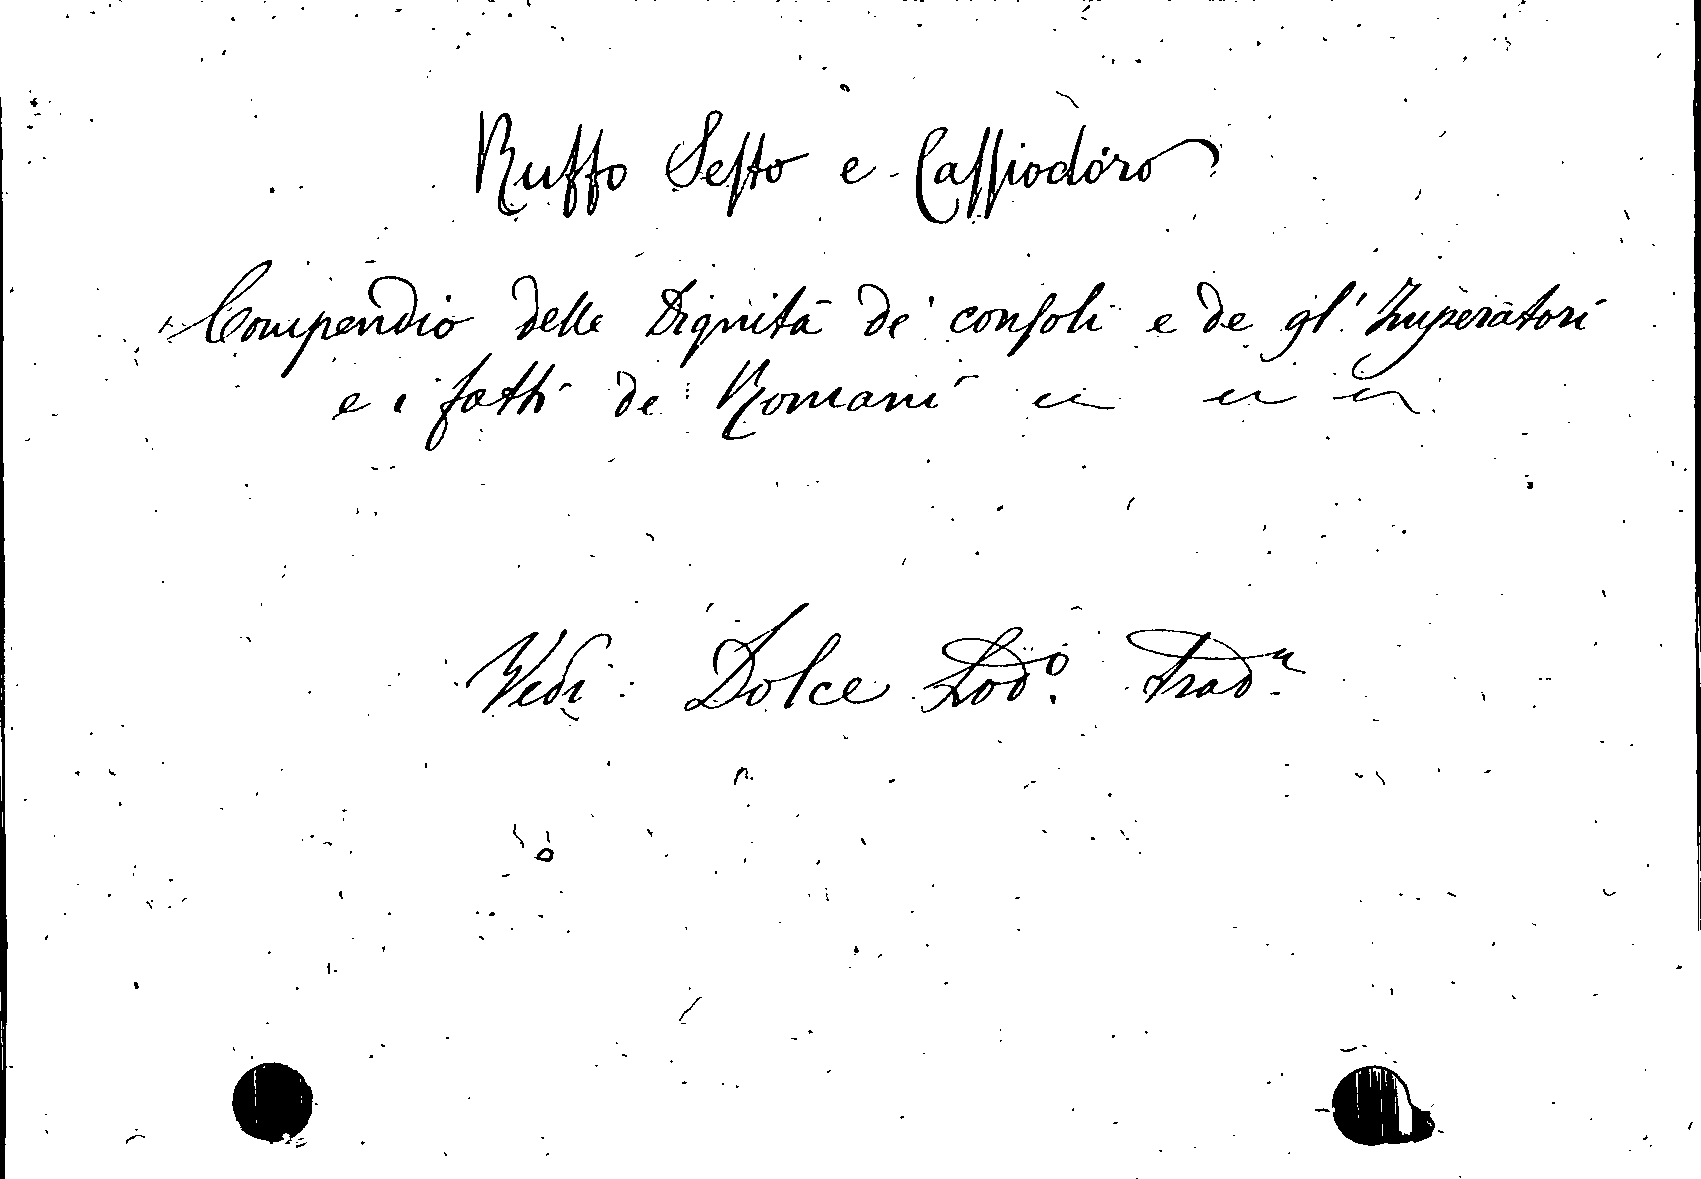 Ruffo Sesto e Cassiodoro
Compendio delle Dignità de' consoli e de gl' Imperatori
e i fatti de Romani
Vedi Dolce Lod.º Trad.